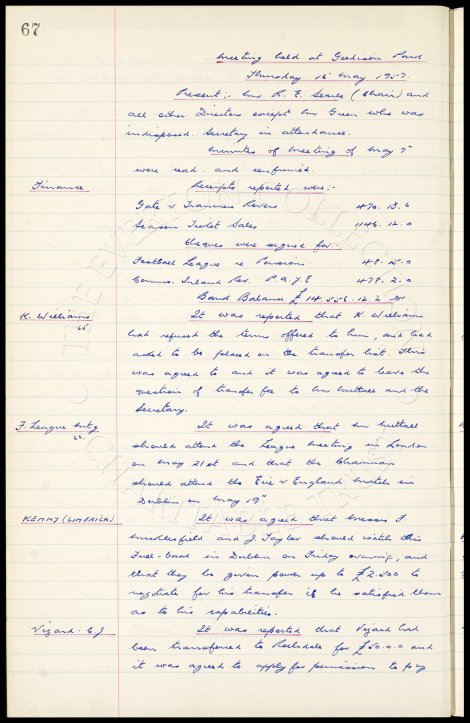 67
Meeting held at Goodison Park
Thursday 16 May 1957.
Present:- Mr R. E. Searle (Chair) and
all other Directors except Mr Green who was
indisposed. Secretary in attendance.
Minutes of meeting of May 7th
were read and confirmed.
Finance Receipts reported were:-
Gate v Tranmere Rovers 470. 13. 6
Season Ticket Sales 1146. 12. 0
Cheques were signed for:-
Football League re Pensions. 48. 0
Comms. Inland Rev. P.A.Y.E 478. 2. 0
Bank Balance £14. 12. 2
K. Williams It was reported that K. Williams
had refused the terms offered to him, and had
asked to be placed on the transfer list. This
was agreed to and it was agreed to leave the
question of transfer fee to Mr Buttall and the
Secretary.
F. League Mtg It was agreed that Mr Buttall
should attend the League Meeting in London
on May 21st and that the Chairman
should attend the Eire v England match in
Dublin on May 19th
KEMMY (LIMERICK) It was agreed that Messrs F.
Micklesfield and J. Taylor should watch this
Full-back in Dublin on Friday evening, and
that they be given power up to £2.500 to
negotiate for his transfer if he satisfied them
as to his capabilities.
Vizard. C.J It was reported that Vizard had
been transferred to Rochdale for £50.0.0 and
it was agreed to apply for permission to pay